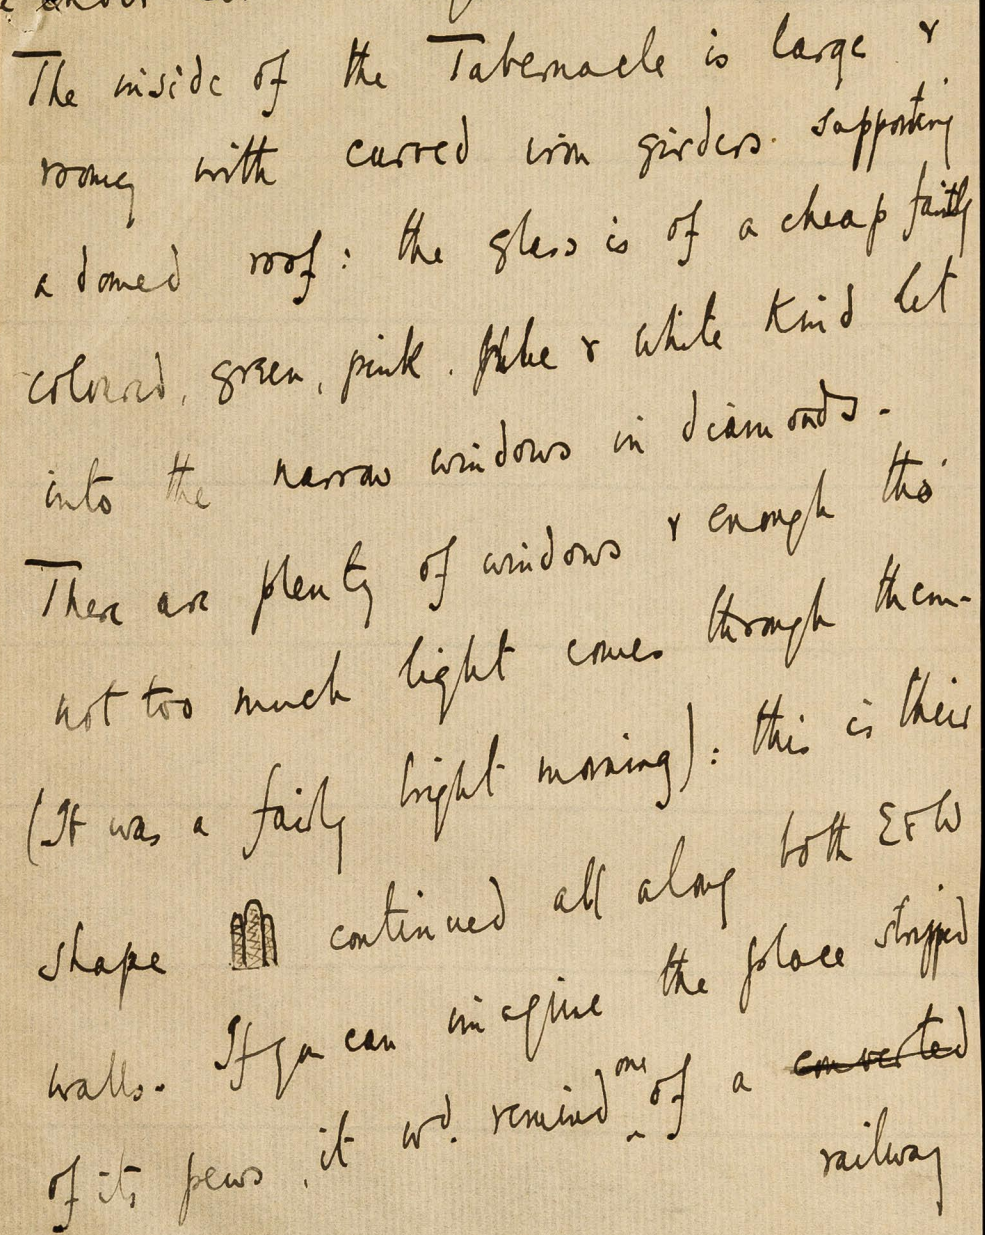 The inside of the Tabernacle is large &
roomy with curved iron girders supporting
a domed roof: the glass is of a cheap faintly
coloured, green, pink, blue & white kind let
into the narrow windows in diamonds.
There are plenty of windows & enough tho'
not too much light comes through them -
(It was a fairly bright morning): this is their
shape continued all along both E & W
walls. If you can imagine the place stripped
of its pews, it wd. remind one of a converted
railway